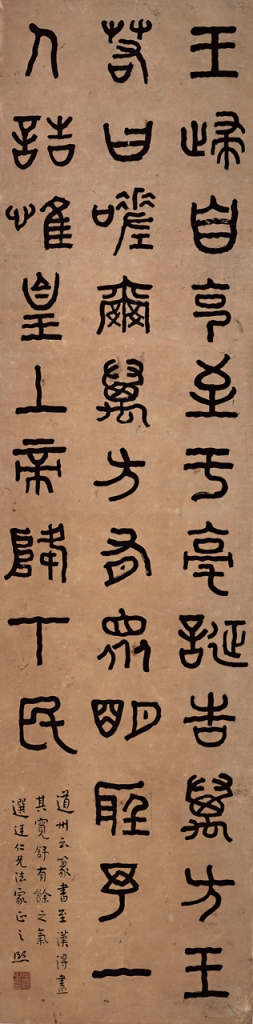 王歸自克至于亳誕告萬方王
若曰嗟爾萬方有眾明聽予一
人誥惟皇上帝降下民
道州云篆書至漢得盡
其寬舒有餘之氣
選廷仁先法家正之 熙